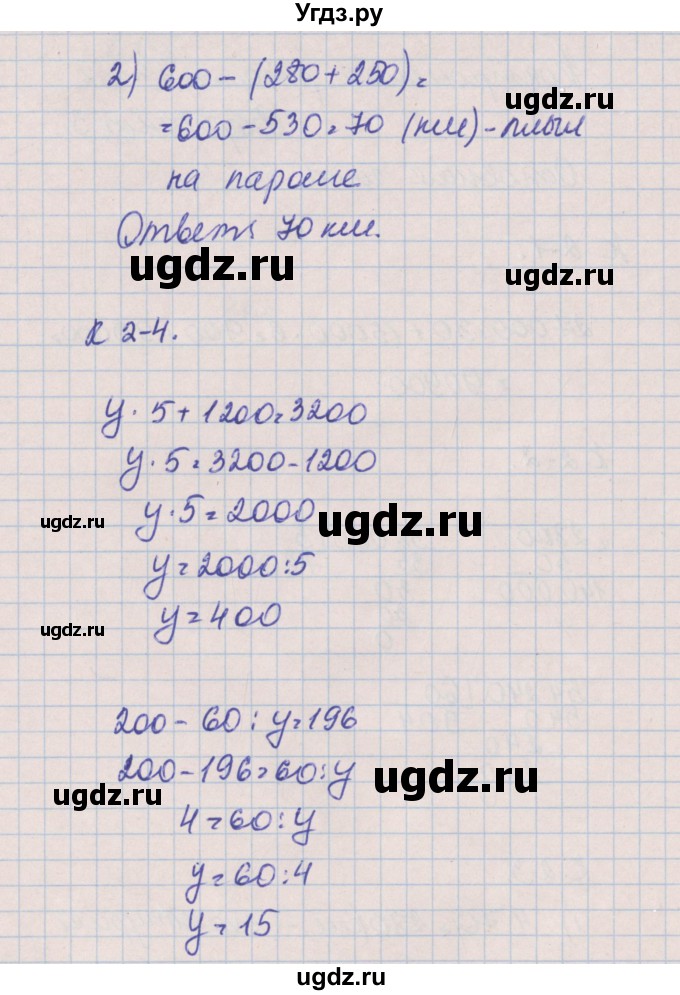 Угдз.ру
2) 600 - (280 + 250) =
= 600 - 530 = 70 (км) - плыл
ugdz.ru
на пароме
Ответ: 70 км.
ugdz.ru
ugdz.ru
К 2-4.
y · 5 + 1200 = 3200
y · 5 = 3200 - 1200
y · 5 = 2000
ugdz.ru
ugdz.ru
y = 2000 : 5
y = 400
ugdz.ru
200 - 60 : y = 196
200 - 196 = 60 : y
ugdz.ru
ugdz.ru
4 = 60 : y
y = 60 : 4
y = 15
ugdz.ru